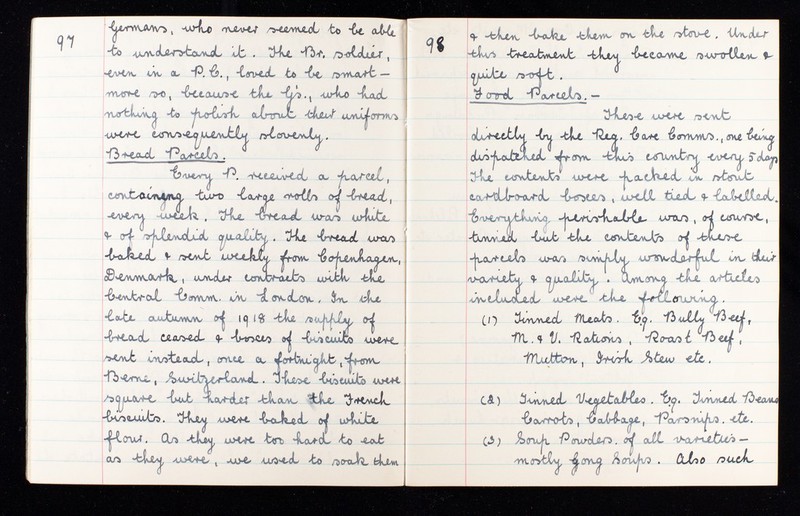 97
Germans, who never seemed to be able
to understand it. The Br. soldier,
even in a P.C., loved to be smart –
more so, because the G's., who had
nothing to polish about their uniforms
were consequently slovenly.
Bread Parcels.
Every P. received a parcel,
containing two large rolls of bread,
every week. The bread was white
& of splendid quality. The bread was
baked & sent weekly from Copenhagen,
Denmark, under contracts with the
Central Comm. in London. In the
late autumn of 1918 the supply of
bread ceased & boxes of biscuits were
sent instead, once a fortnight, from
Berne, Switzerland. These biscuits were
square but harder than the French
biscuits. They were baked of white
flour. As they were too hard to eat
as they were, we used to soak them
98
& then bake them on the stove. Under
this treatment they became swollen &
quite soft.
Food Parcels. –
These were sent
directly by the Reg. Care Comms., one being
dispatched from this country every 5 days
The contents were packed in stout
cardboard boxes, well tied & labelled.
Everything perishable was, of course,
tinned but the contents of these
parcels was simply wonderful in their
variety & quality. Among the articles
included were the following.
(1) Tinned Meats. E.g. Bully Beef,
M. & V. Rations, Roast Beef,
Mutton, Irish Stew etc.
(2) Tinned Vegetables. E.g. Tinned Beans
Carrots, Cabbage, Parsnips. etc.
(3) Soup Powders. of all varieties –
mostly Gong Soups. Also such